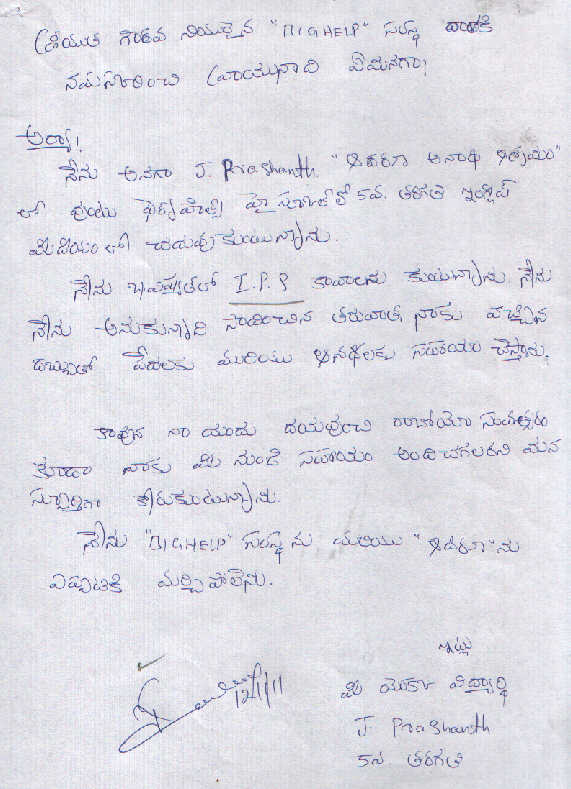 ప్రియత గౌరవ నియులైన "BIGHELP" సంస్థ వారికి
నమస్కరించి వ్రాయునది ఏమనగా!
ఆర్యా!
నేను అనగా J. Prashanth "ఆదరణ అనాథ ఆశ్రమం"
లో వుంటు హై స్కూల్ లో 5వ. తరగతి ఇంగ్లీష్
మీడియంలో చదువుకుంటున్నాను.
నేను భవిష్యత్‌లో I.P.S కావాలను కుంటున్నాను. నేను
నేను అనుకున్నది సాధించిన తరువాత, నాకు వచ్చిన
డబ్బుతో పేదలకు మరియు అనాథలకు సహాయం చేస్తాను.
కావున నా యందు దయవుంచి రాబోయే సంవత్సరం
కూడా నాకు మీ నుండి సహాయం అందించగలరని మన
స్ఫూర్తిగా కోరుకుంటున్నాను.
నేను "BIGHELP" సంస్థ ను మరియు "ఆదరణ"ను
ఎప్పటికి మర్చిపోలేను.
ఇట్లు
మీ యొక్క విద్యార్థి
J Prashanth
5వ తరగతి
12/1/11